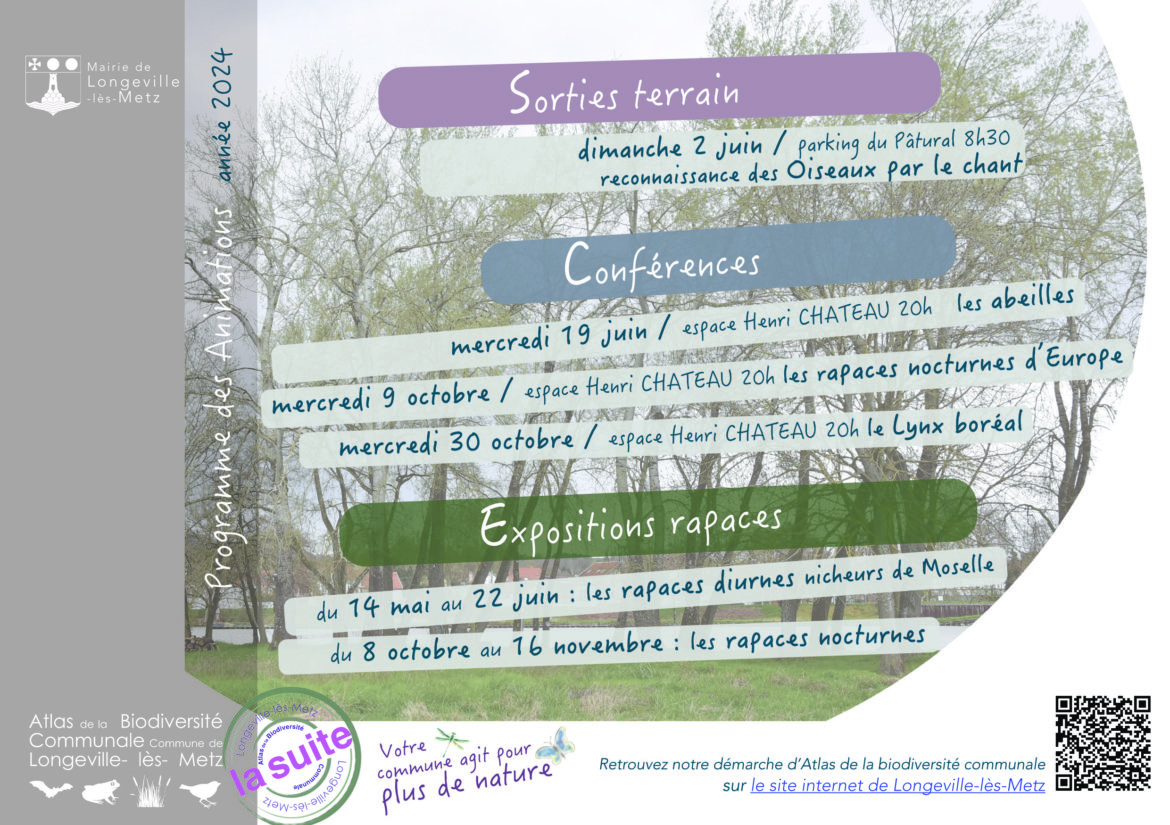 Mairie de
Longeville
-lès-Metz
Programme des Animations année 2024
Sorties terrain
dimanche 2 juin / parking du Pâtural 8h30
reconnaissance des Oiseaux par le chant
Conférences
mercredi 19 juin / espace Henri CHATEAU 20h les abeilles
mercredi 9 octobre / espace Henri CHATEAU 20h les rapaces nocturnes d'Europe
mercredi 30 octobre / espace Henri CHATEAU 20h le Lynx boréal
Expositions rapaces
du 14 mai au 22 juin : les rapaces diurnes nicheurs de Moselle
du 8 octobre au 16 novembre : les rapaces nocturnes
Atlas de la Biodiversité
Communale Commune de
Longeville- lès- Metz
Longeville-lès-Metz
Atlas de la Biodiversité
la suite
Communale
Longeville-lès-Metz
Votre
commune agit pour
plus de nature
Retrouvez notre démarche d'Atlas de la biodiversité communale
sur le site internet de Longeville-lès-Metz